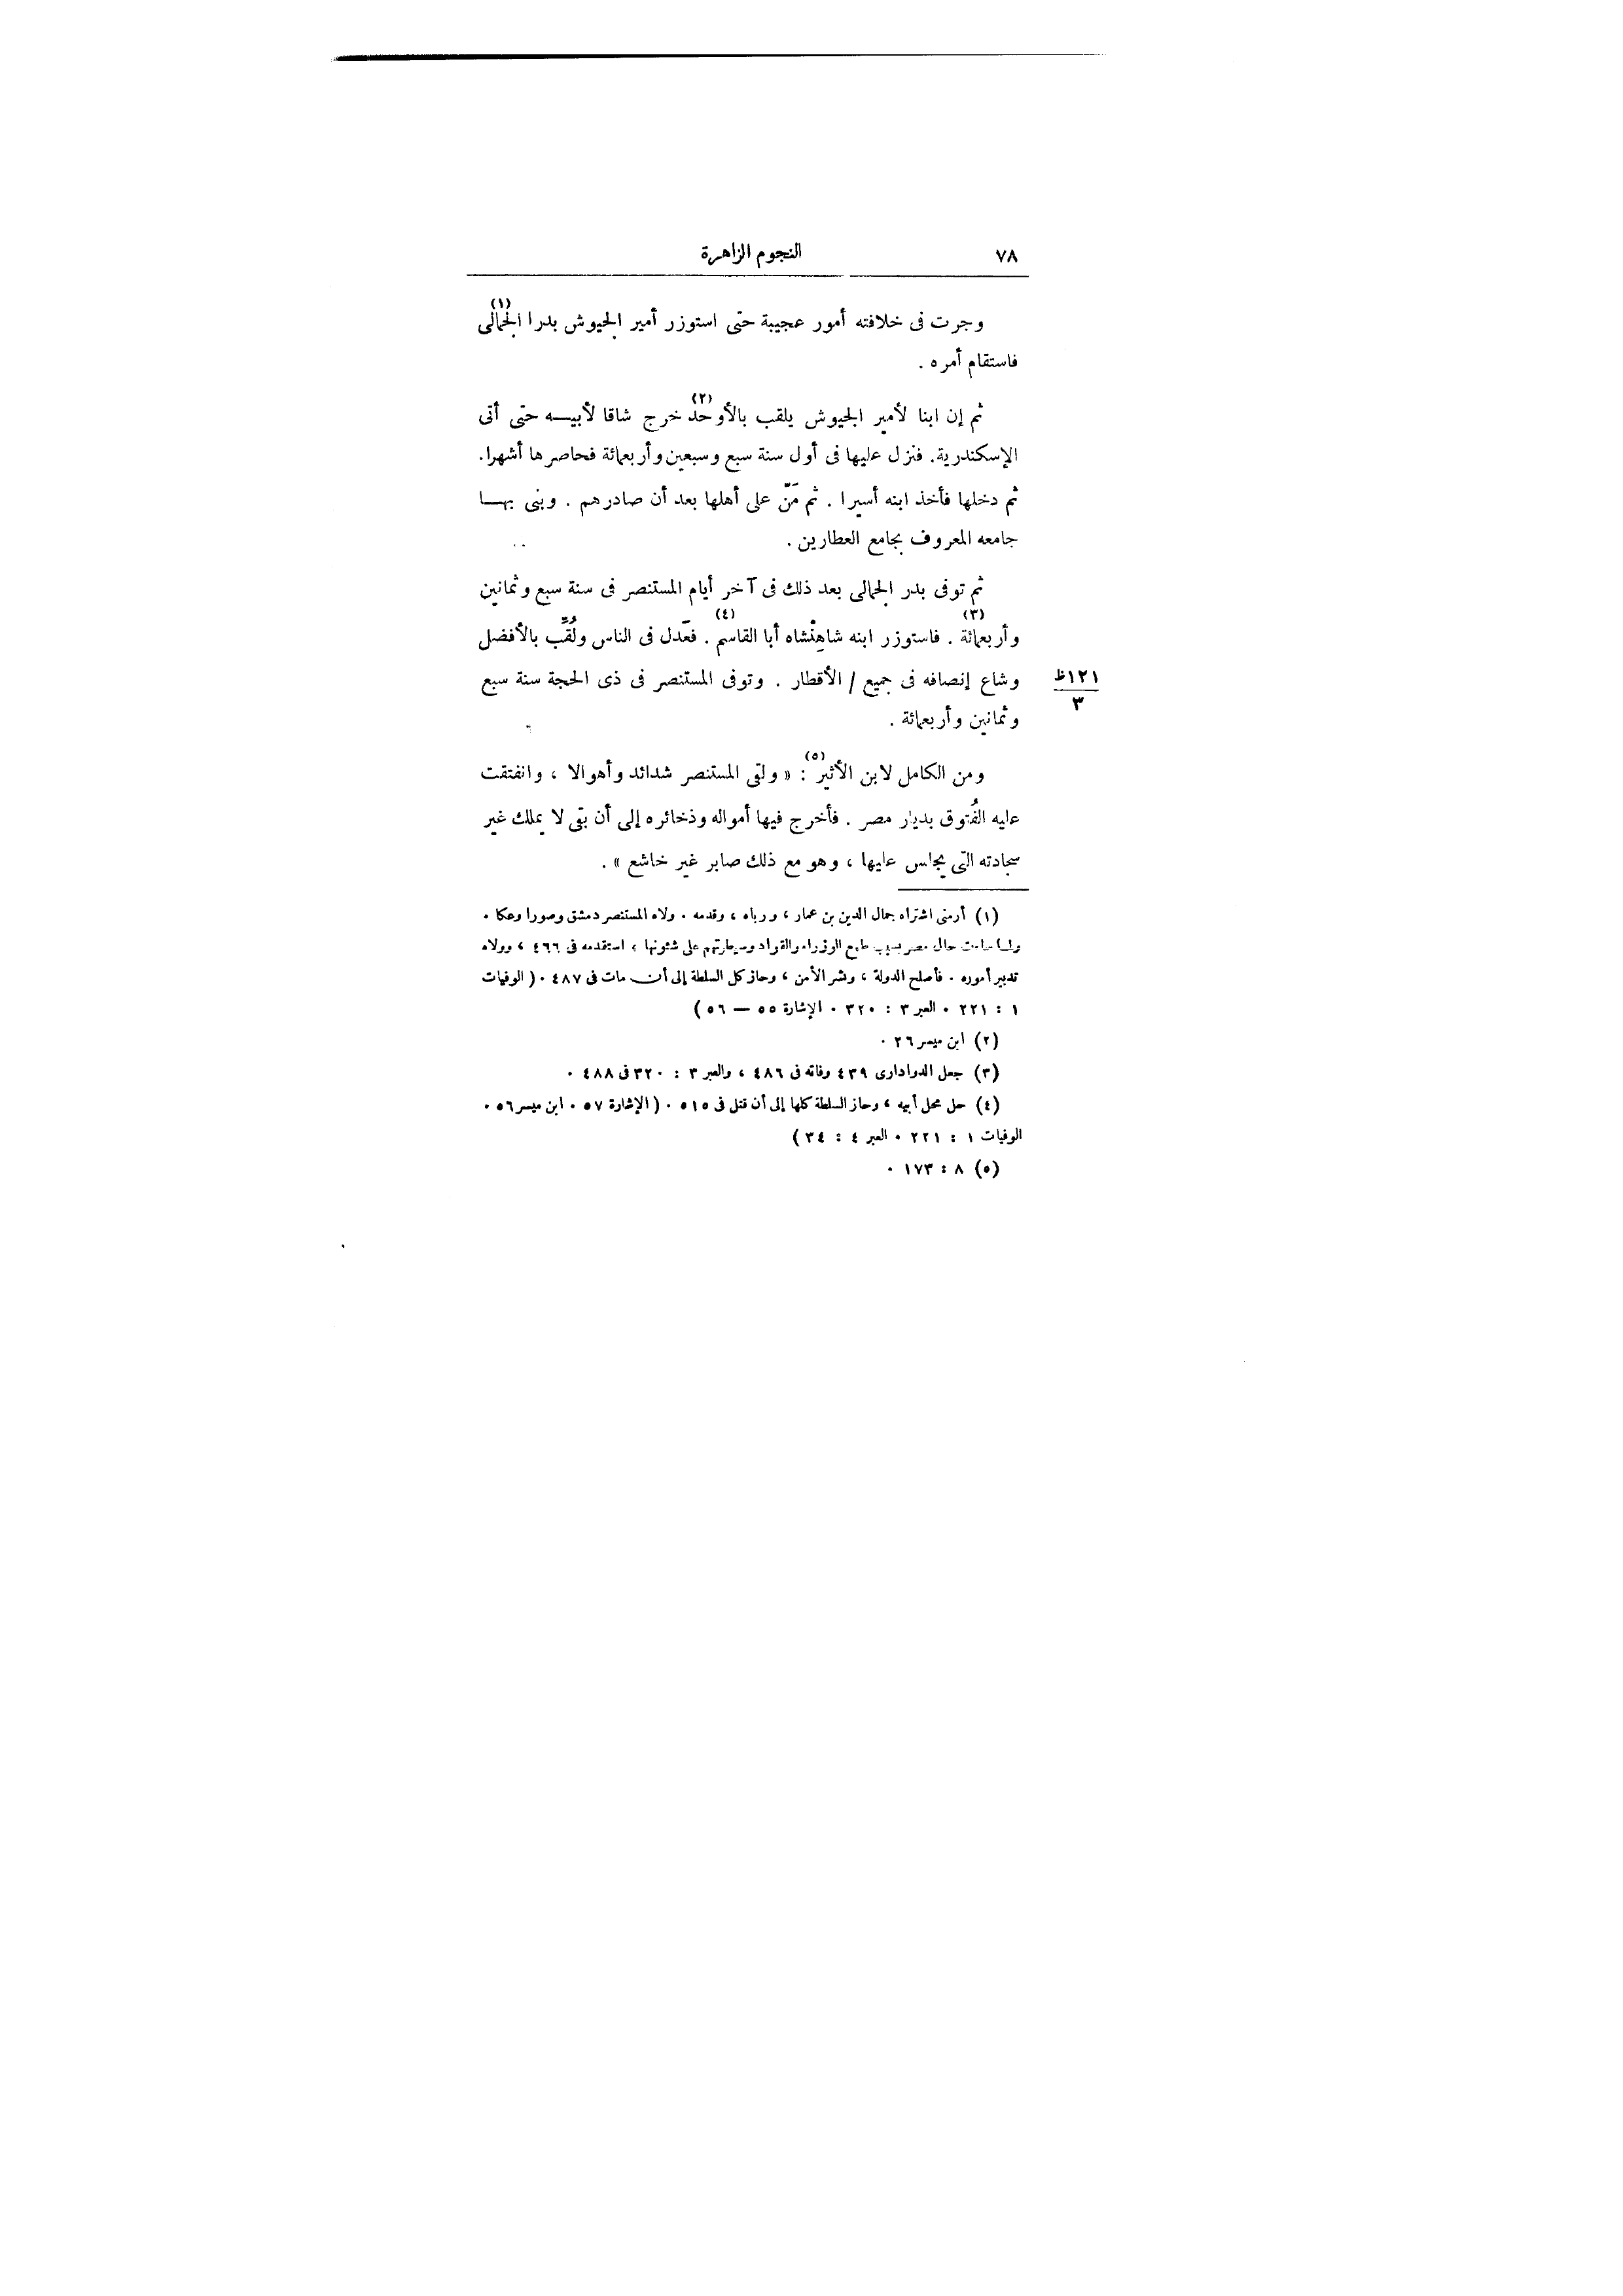 ٧٨
النجوم الزاهرة
وجرت فى خلافته أمور عجيبة حتى استوزر أمير الجيوش بدرا الجمالى (١)
فاستقام أمره .
ثم إن ابنا لأمير الجيوش يلقب بالأوحد (٢) خرج شاقا لأبيه حتى أتى
الإسكندرية. فنزل عليها فى أول سنة سبع وسبعين وأربعمائة فحاصرها أشهرا.
ثم دخلها فأخذ ابنه أسيرا . ثم مَنّ على أهلها بعد أن صادرهم . وبنى بهـا
جامعه المعروف بجامع العطارين .
ثم توفى بدر الجمالى بعد ذلك فى آخر أيام المستنصر فى سنة سبع وثمانين
وأربعمائة (٣) . فاستوزر ابنه شاهِنْشاه أبا القاسم (٤) . فعَدل فى الناس ولُقِّب بالأفضل
وشاع إنصافه فى جميع / الأقطار . وتوفى المستنصر فى ذى الحجة سنة سبع
١٢١ظ
٣
وثمانين وأربعمائة .
ومن الكامل لابن الأثير (٥) : « ولقى المستنصر شدائد وأهوالا ، وانفتقت
عليه الفُتوق بديار مصر . فأخرج فيها أمواله وذخائره إلى أن بقى لا يملك غير
سجادته التى يجلس عليها ، وهو مع ذلك صابر غير خاشع » .
(١) أرمنى اشتراه جمال الدين بن عمار ، ورباه ، وقدمه . ولاه المستنصر دمشق وصورا وعكا .
ولما ساءت حال مصر بسبب طمع الوزراء والقواد وسيطرتهم على شئونها ، استقدمه فى ٤٦٦ ، وولاه
تدبير أموره . فأصلح الدولة ، ونشر الأمن ، وحاز كل السلطة إلى أن مات فى ٤٨٧ . ( الوفيات
١ : ٢٢١ . العبر ٣ : ٣٢٠ . الإشارة ٥٥ — ٥٦ )
(٢) ابن ميسر ٢٦ .
(٣) جعل الدوادارى ٤٣٩ وفاته فى ٤٨٦ ، والعبر ٣ : ٣٢٠ فى ٤٨٨ .
(٤) حل محل أبيه ، وحاز السلطة كلها إلى أن قتل فى ٥١٥ . ( الإشارة ٥٧ . ابن ميسر ٥٦ .
الوفيات ١ : ٢٢١ . العبر ٤ : ٣٤ )
(٥) ٨ : ١٧٣ .